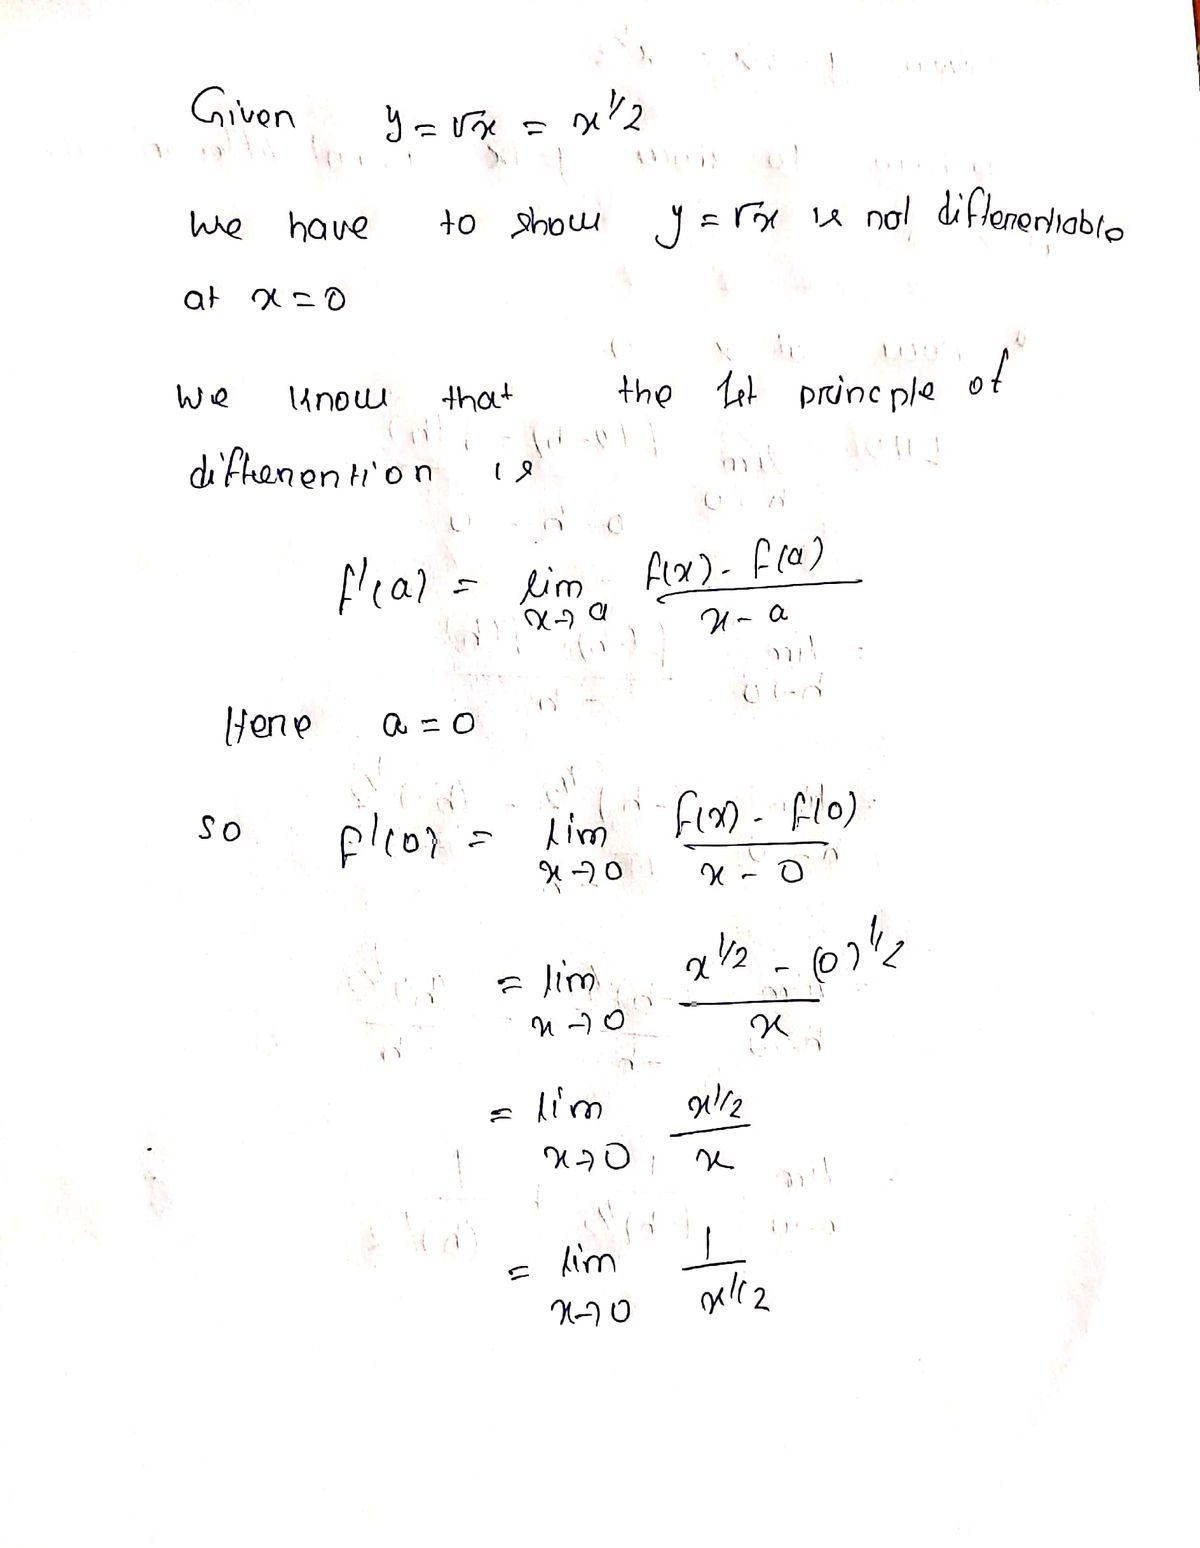 Given y = √x = x^1/2
we have to show y = √x is not differentiable
at x = 0
we know that the 1st principle of
differention is
f'(a) = lim x→a f(x) - f(a) / x - a
Here a = 0
so f'(0) = lim x→0 f(x) - f(0) / x - 0
= lim x→0 x^1/2 - (0)^1/2 / x
= lim x→0 x^1/2 / x
= lim x→0 1 / x^1/2